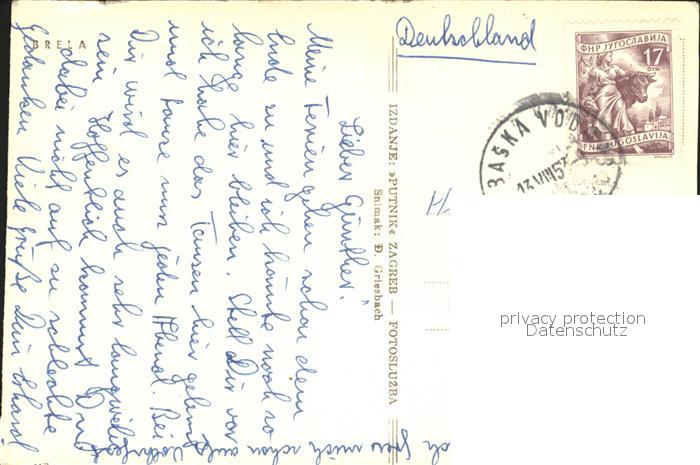 BRELA
Lieber Günther!
Meine Ferien gehen schon dem
Ende zu und ich könnte noch so
lange hier bleiben. Stell Dir vor
ich habe das Tanzen hier gelernt
und tanze nun jeden Abend. Bei
Dir wird es auch sehr langweilig
sein. Hoffentlich kommst Du
dabei nicht auf zu schlechte
Gedanken. Viele Grüße Dein
ich freu mich schon aufs
IZDANJE: »PUTNIK« ZAGREB — FOTOSLUŽBA
Snimak: Đ. Griesbach
Deutschland
ФНР ЈУГОСЛАВИЈА
17
DIN
FNR JUGOSLAVIJA
BAŠKA VODA
13.VIII.57
privacy protection
Datenschutz